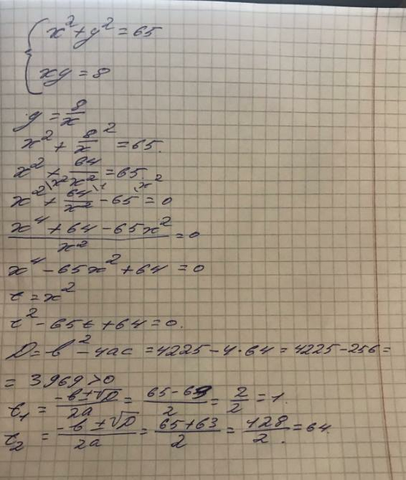 x² + y² = 65
xy = 8
y = 8/x
x² + 8/x ² = 65.
x² + 64/x² = 65
x² + 64/x² - 65 = 0
(x⁴ + 64 - 65x²)/x² = 0
x⁴ - 65x² + 64 = 0
t = x²
t² - 65t + 64 = 0.
D = b² - 4ac = 4225 - 4·64 = 4225 - 256 =
= 3969 > 0
t₁ = (-b ± √D)/2a = (65 - 63)/2 = 2/2 = 1.
t₂ = (-b ± √D)/2a = (65 + 63)/2 = 128/2 = 64.